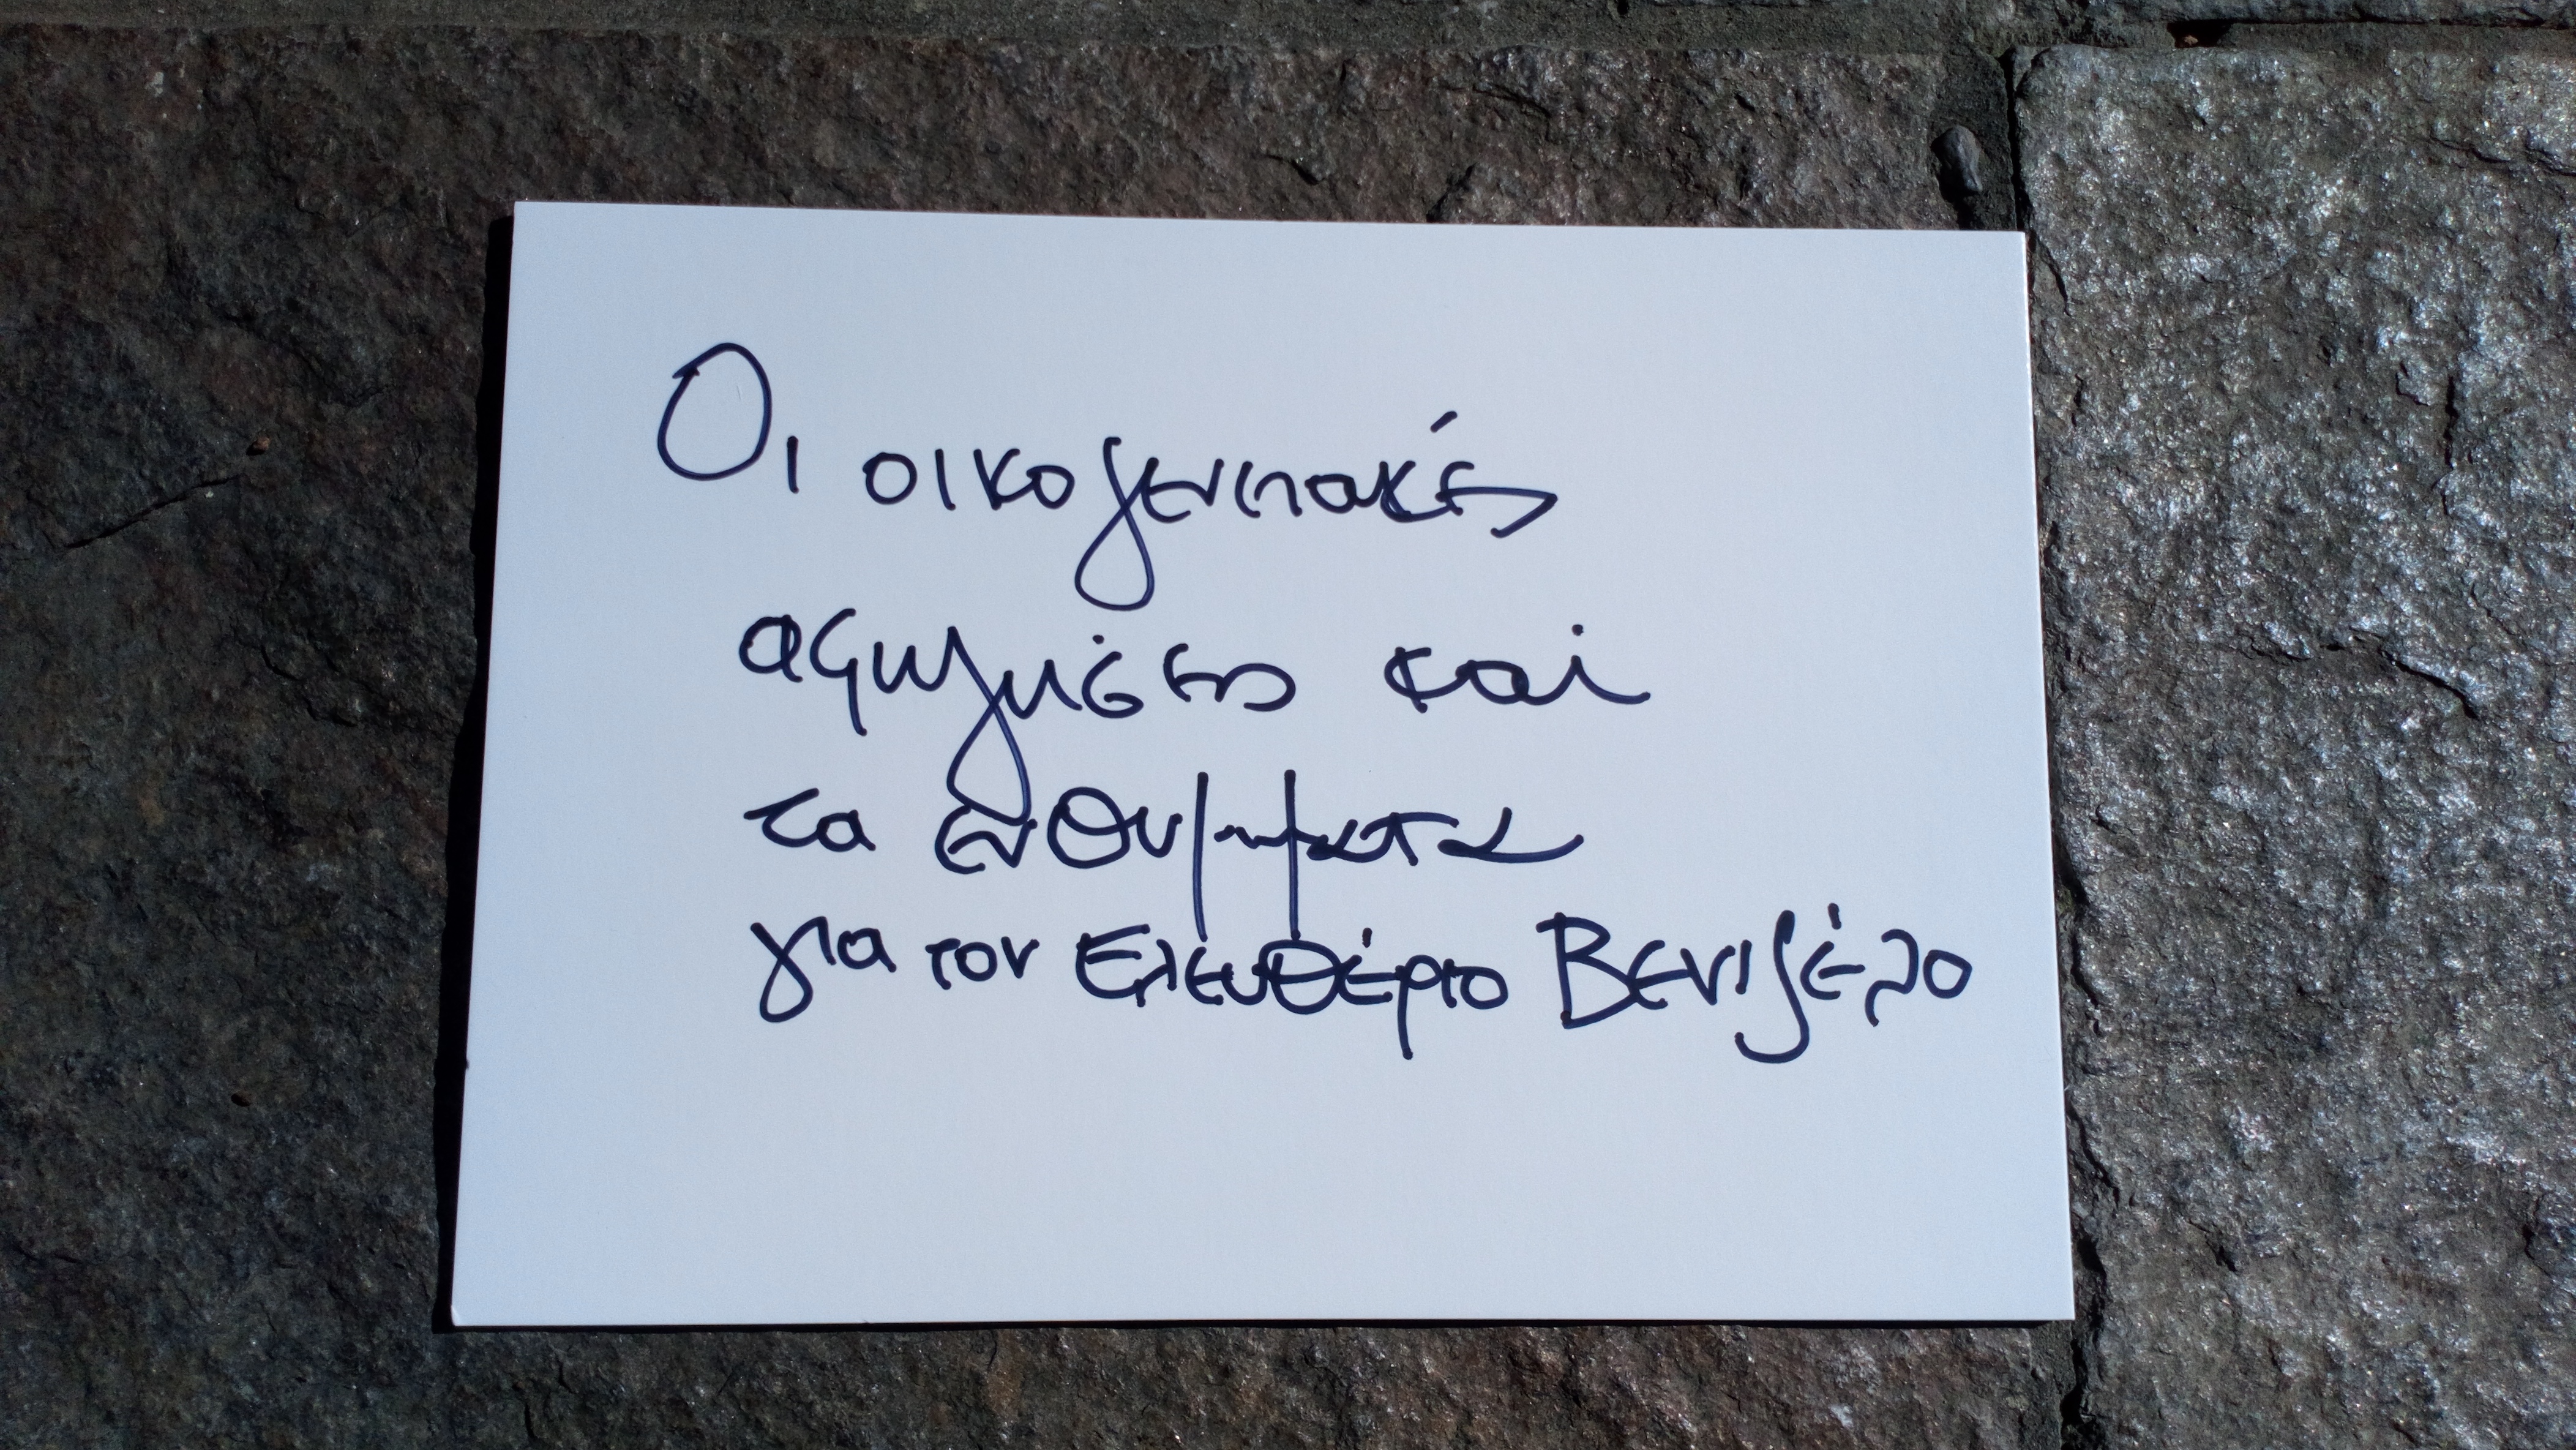 Οι οικογενειακές
αφηγήσεις και
τα ενθυμήματα
για τον Ελευθέριο Βενιζέλο